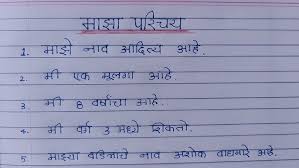 माझा परिचय
1. माझे नाव आदित्य आहे.
2. मी एक मुलगा आहे.
3. मी 8 वर्षाचा आहे.
4. मी वर्ग 3 मध्ये शिकतो.
5. माझ्या वडिलाचे नाव अशोक वाघमारे आहे.